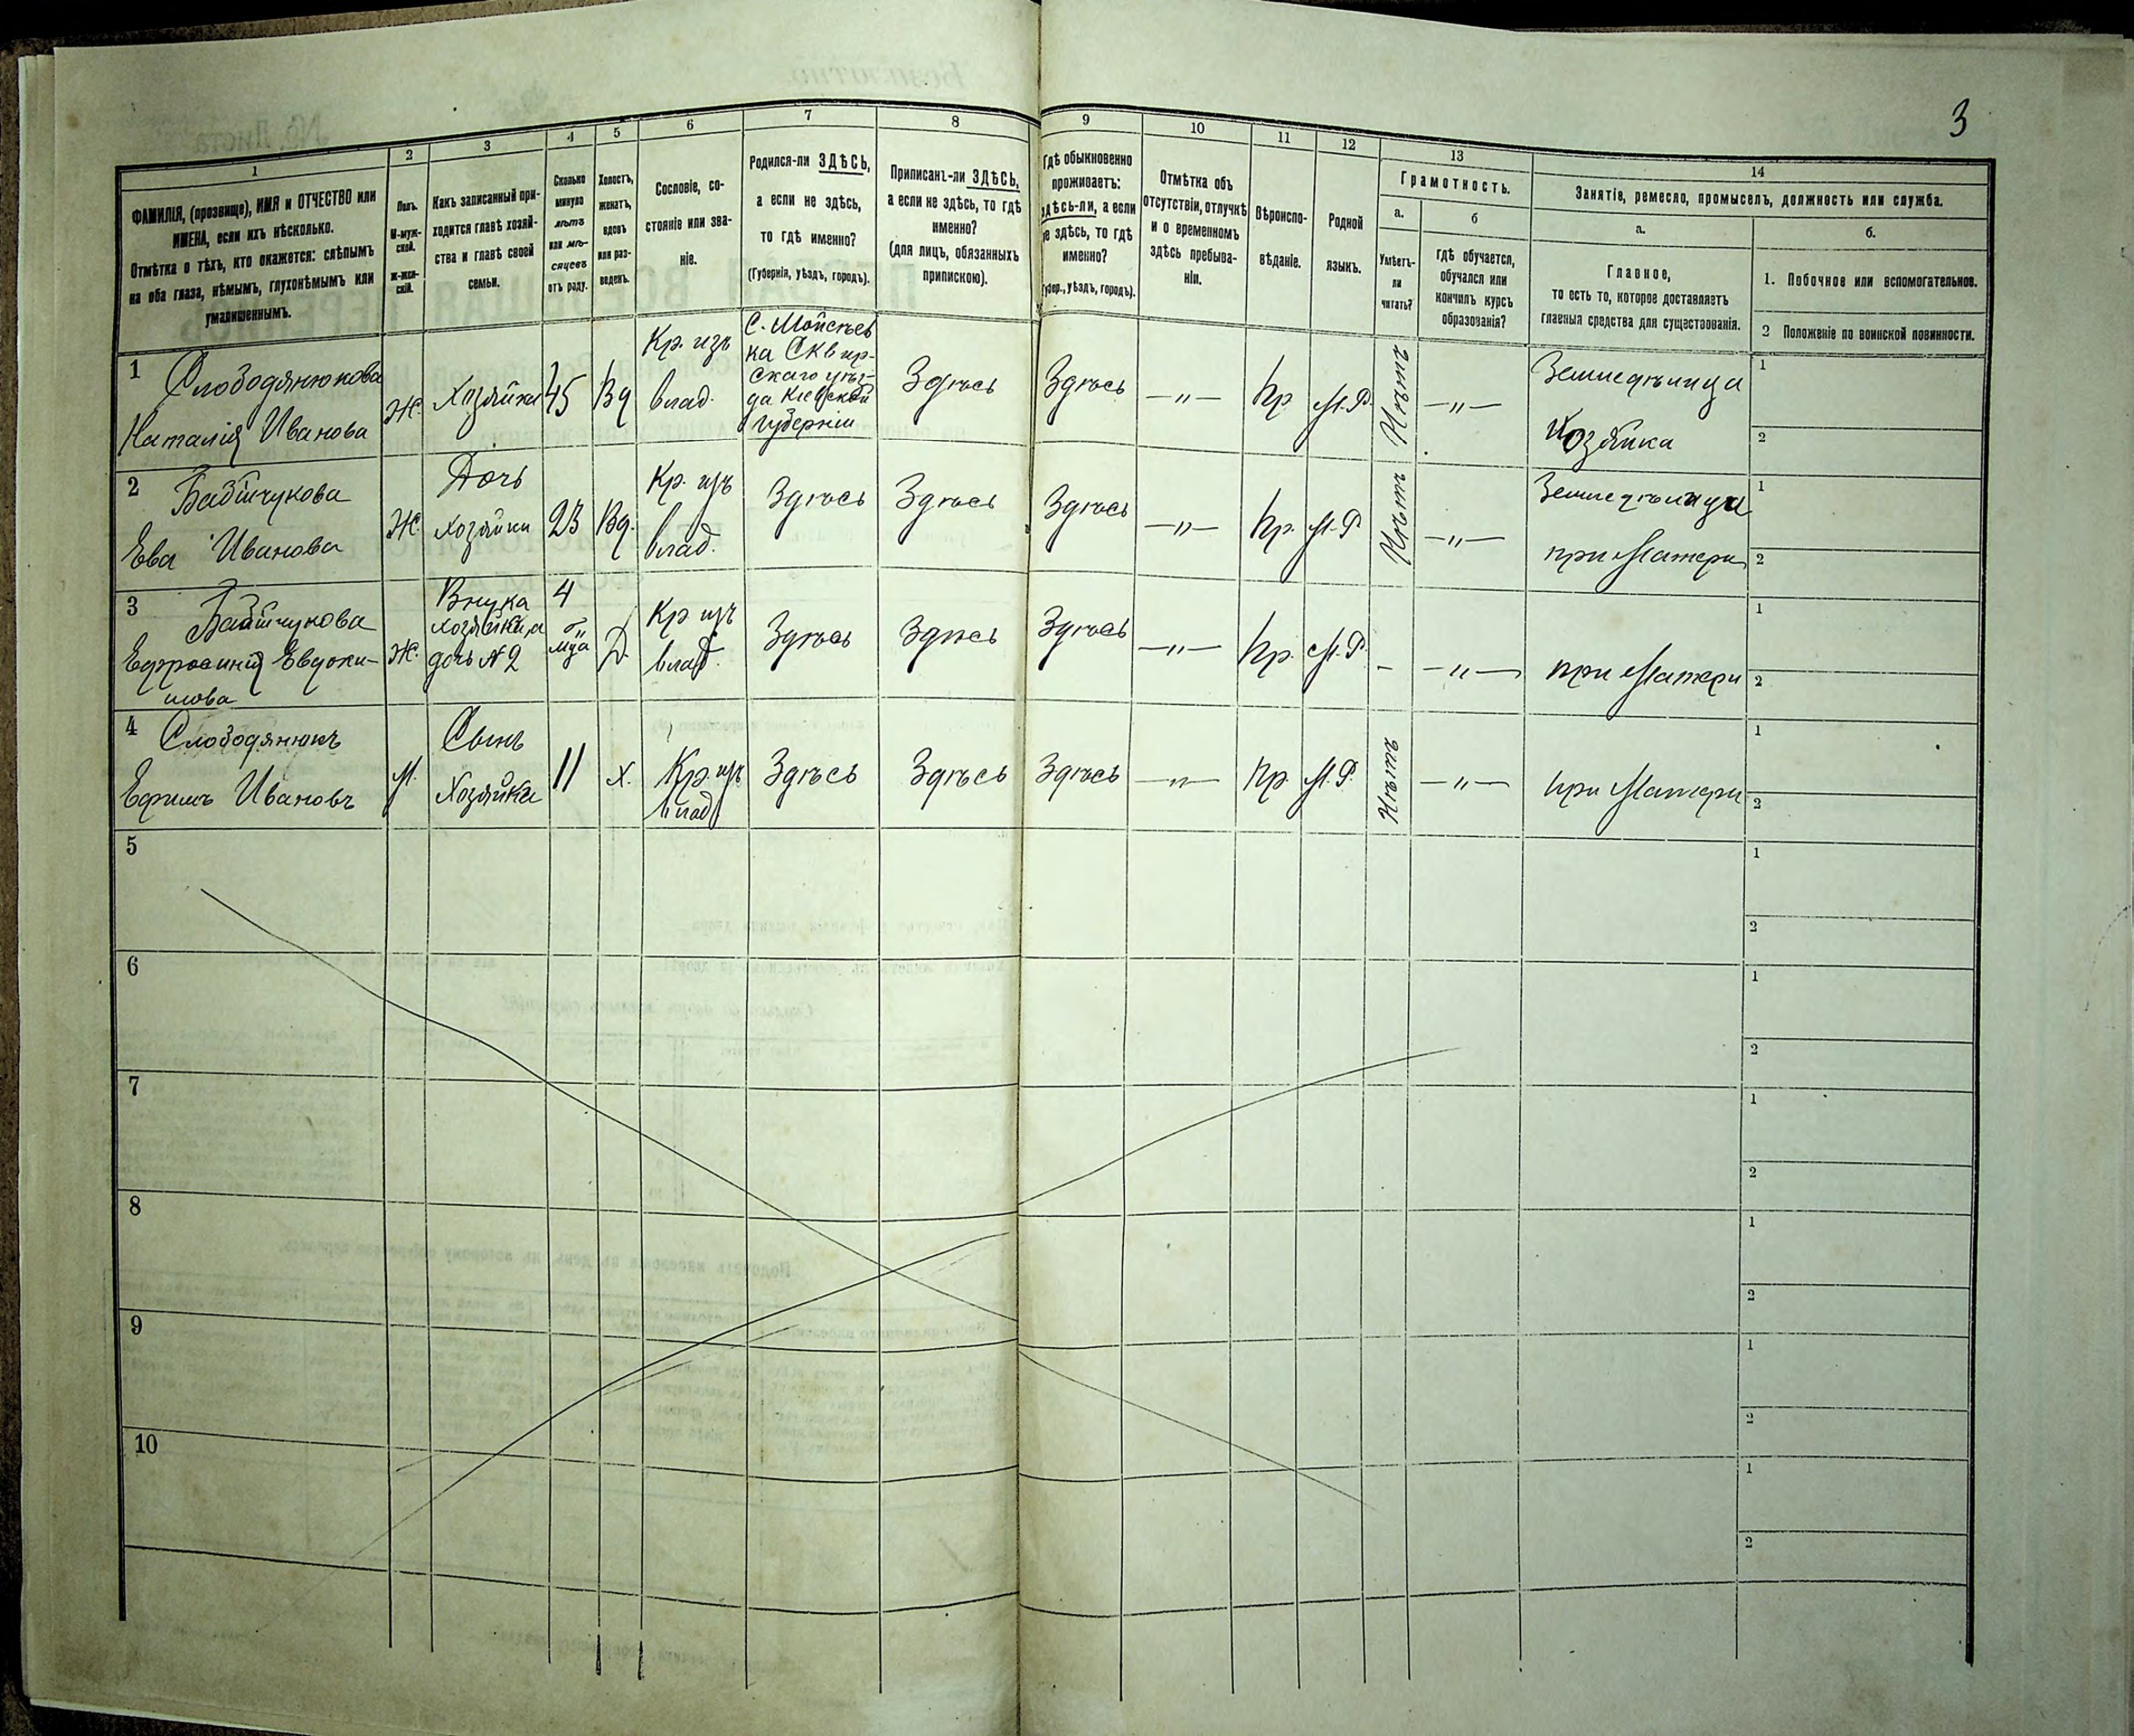 3
1
2
3
4
5
6
7
8
9
10
11
12
13
14
ФАМИЛІЯ, (прозвище), ИМЯ и ОТЧЕСТВО или
ИМЕНА, если ихъ нѣсколько.
Отмѣтка о тѣхъ, кто окажется: слѣпымъ
на оба глаза, нѣмымъ, глухонѣмымъ или
умалишеннымъ.
Полъ.
М-муж-
ской.
ж-жен-
скій.
Какъ записанный при-
ходится главѣ хозяй-
ства и главѣ своей
семьи.
Сколько
минуло
лѣтъ
или мѣ-
сяцевъ
отъ роду.
Холостъ,
женатъ,
вдовъ
или раз-
веденъ.
Сословіе, со-
стояніе или зва-
ніе.
Родился-ли ЗДѢСЬ,
а если не здѣсь,
то гдѣ именно?
(Губернія, уѣздъ, городъ).
Приписанъ-ли ЗДѢСЬ,
а если не здѣсь, то гдѣ
именно?
(для лицъ, обязанныхъ
припискою).
Гдѣ обыкновенно
проживаетъ:
здѣсь-ли, а если
не здѣсь, то гдѣ
именно?
(Губер., уѣздъ, городъ).
Отмѣтка объ
отсутствіи, отлучкѣ
и о временномъ
здѣсь пребыва-
ніи.
Вѣроиспо-
вѣданіе.
Родной
языкъ.
Грамотность.
а.
б
Умѣетъ-
ли
читать?
гдѣ обучается,
обучался или
кончилъ курсъ
образованія?
Занятіе, ремесло, промыселъ, должность или служба.
а.
б.
Главное,
то есть то, которое доставляетъ
главныя средства для существованія.
1. Побочное или вспомогательное.
2 Положеніе по воинской повинности.
1 Слободянюкова
Наталія Иванова
Ж.
Хозяйка
45
Вд
Кр. изъ
влад.
С. Мойсѣев
ка Сквир-
скаго уѣз-
да Кіевской
губерніи
Здѣсь
Здѣсь
—"—
Пр
М.Р.
Нѣтъ
—"—
Земледѣлица
Хозяйка
1
2
2 Бабійчукова
Ева Иванова
Ж.
Дочь
хозяйки
23
Вд.
Кр. изъ
влад.
Здѣсь
Здѣсь
Здѣсь
—"—
Пр.
М.Р
Нѣтъ
—"—
Земледѣлица
при Матери
1
2
3 Бабійчукова
Евфросинія Евдоки-
мова
Ж.
Внука
хозяйки, а
дочь № 2
4
Д
Кр изъ
влад.
Здѣсь
Здѣсь
Здѣсь
—"—
Пр.
М.Р.
-
—"—
при Матери
1
2
4 Слободянюкъ
Ефимъ Ивановъ
М.
Сынъ
Хозяйки
11
х.
Кр. изъ
влад
Здѣсь
Здѣсь
Здѣсь
—"—
Пр.
М.Р.
Нѣтъ
—"—
при Матери
1
2
5
1
2
6
1
2
7
1
2
8
1
2
9
1
2
10
1
2